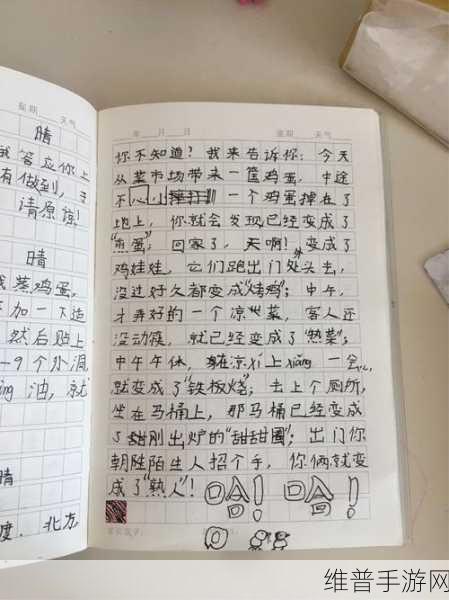 星期 天气
晴
我答应你上
有做到，于
请原谅！
晴
我蒸鸡蛋，
加一下造
然后贴上
一9个小洞
油，就
晴
度．北方，
年 月 日 星期 天气
你不知道？我来告诉你：今天
从菜市场带来一筐鸡蛋，中途
不心小 一个鸡蛋掉在了
地上，你就会发现已经变成了
“煎蛋”；回家了，天啊！变成了
鸡娃娃，它们跑出门外处头去，
没过好久都变成“烤鸡”；中午，
才弄好的一个凉菜，客人还
没动筷，就已经变成了“热菜”；
中午午休，在凉xí上xiǎng一会儿，
就变成了“铁板烧”；去上个厕所，
坐在马桶上，那马桶已经变成
了甜刚出炉的“甜甜圈”；出门你
朝胜陌生人招个手，你俩就变
成了“熟人”！哈！哈！
维普手游网